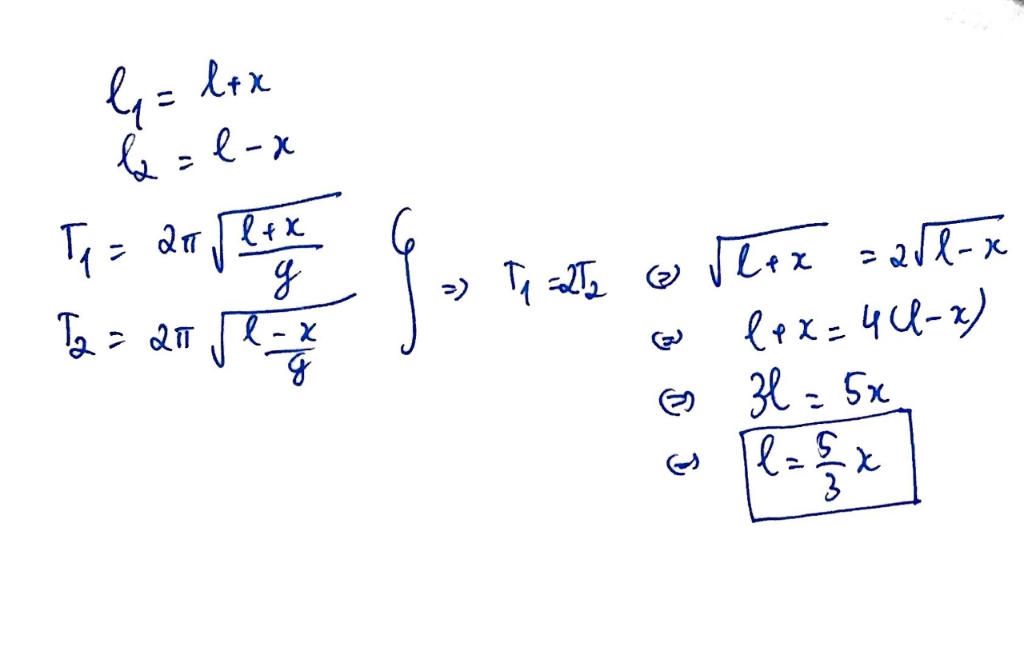 l₁ = l+x
l₂ = l-x
T₁ = 2π√((l+x)/g)
T₂ = 2π√((l-x)/g)
} => T₁ =2T₂ <=> √(l+x) = 2√(l-x)
<=> l+x = 4(l-x)
<=> 3l = 5x
<=> l = 5/3 x